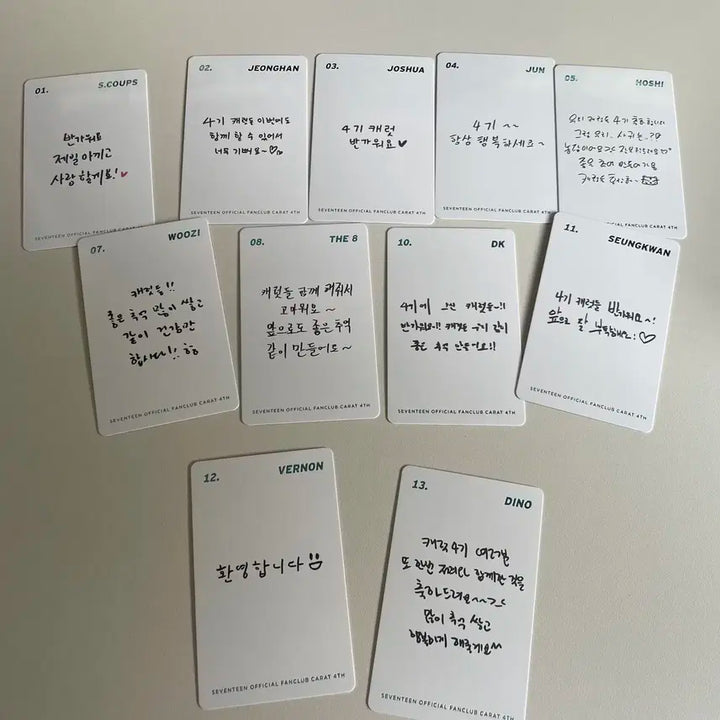 01. S.COUPS
반가워요
제일 아끼고
사랑할게요!♥
SEVENTEEN OFFICIAL FANCLUB CARAT 4TH
02. JEONGHAN
4기 캐럿들 이번에도
함께 할 수 있어서
너무 기뻐요~♡
SEVENTEEN OFFICIAL FANCLUB CARAT 4TH
03. JOSHUA
4기 캐럿
반가워요♥
SEVENTEEN OFFICIAL FANCLUB CARAT 4TH
04. JUN
4기 ~~
항상 행복하세요~
SEVENTEEN OFFICIAL FANCLUB CARAT 4TH
05. HOSHI
우리 캐럿들 4기 축하합니다
그럼 우리
좋은 추억 만들어가요
캐럿들
SEVENTEEN OFFICIAL FANCLUB CARAT 4TH
07. WOOZI
캐럿들!!
좋은 추억 많이 쌓고
같이 건강만
합시다!!
SEVENTEEN OFFICIAL FANCLUB CARAT 4TH
08. THE 8
캐럿들 함께 해줘서
고마워요~
앞으로도 좋은 추억
같이 만들어요~
SEVENTEEN OFFICIAL FANCLUB CARAT 4TH
10. DK
4기에 오신 캐럿들~!!
반가워요!! 캐럿들 같이
좋은 추억 만들어요!!
SEVENTEEN OFFICIAL FANCLUB CARAT 4TH
11. SEUNGKWAN
4기 캐럿들 반가워요~!
앞으로 잘 부탁해요!♡
SEVENTEEN OFFICIAL FANCLUB CARAT 4TH
12. VERNON
환영합니다
SEVENTEEN OFFICIAL FANCLUB CARAT 4TH
13. DINO
캐럿 4기 여러분
또 한번 저희와 함께한 것을
축하드려요~~^^
많이 추억 쌓고
행복하게 해줄게요^^
SEVENTEEN OFFICIAL FANCLUB CARAT 4TH